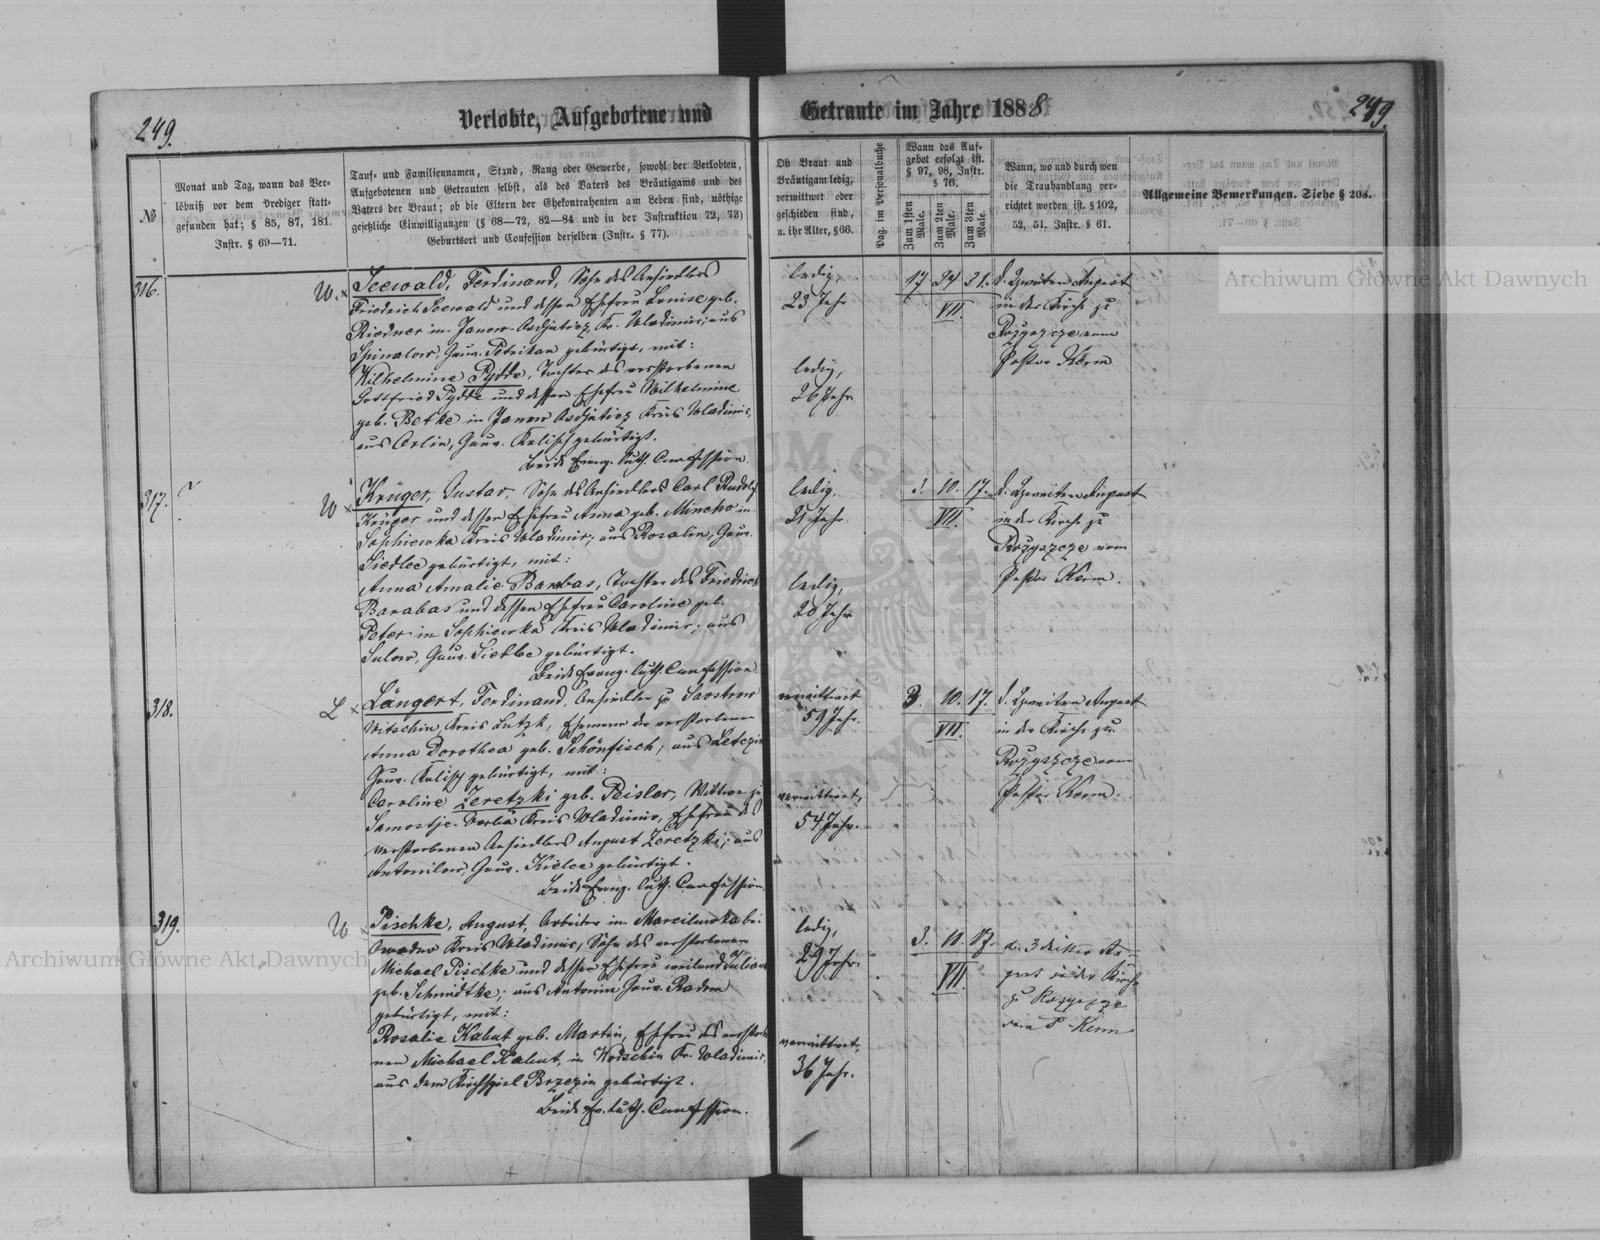 249.
Verlobte, Aufgebotene und
Getraute im Jahre 1888
249.
№
Monat und Tag, wann das Ver-
löbniß vor dem Prediger statt-
gefunden hat; § 85, 87, 181.
Instr. § 69—71.
Tauf- und Familiennamen, Stand, Rang oder Gewerbe, sowohl der Verlobten,
Aufgebotenen und Getrauten selbst, als des Vaters des Bräutigams und des
Vaters der Braut; ob die Eltern der Ehekontrahenten am Leben sind, nöthige
gesetzliche Einwilligungen (§ 68—72, 82—84 und in der Instruktion 72, 73)
Geburtsort und Confession derselben (Instr. § 77).
Ob Braut und
Bräutigam ledig,
verwittwet oder
geschieden sind,
u. ihr Alter, § 66.
Pag. im Personalbuche
Wann das Auf-
gebot erfolgt ist.
§ 97, 98, Instr.
§ 76.
Zum 1sten Male.
Zum 2ten Male.
Zum 3ten Male.
Wann, wo und durch wen
die Trauhandlung ver-
richtet worden ist. § 102,
52, 51. Instr. § 61.
Allgemeine Bemerkungen. Siehe § 208.
316.
W. × Seewald, Ferdinand, Sohn des Ansiedlers
Friedrich Seewald und dessen Ehefrau Louise geb.
Riedner in Janow-Asdjutiez, Kr. Wladimir; aus
Spinalow, Gouv. Petrikau gebürtig, mit:
Wilhelmine Pydde, Tochter des verstorbenen
Gottfried Pydde und dessen Ehefrau Wilhelmine
geb. Betke in Janow Asdjutiez Kreis Wladimir,
aus Corlin, Gouv. Kalisch gebürtigt.
beide Evang. luth. Confession.
ledig,
23 Jahr
ledig,
26 Jahr
17 24 21.
VII.
d. Zweiten August
in der Kirche zu
Rozyszcze vom
Pastor Kerm
317.
W × Krüger, Gustav, Sohn des Ansiedlers Carl Rudolf
Krüger und dessen Ehefrau Anna geb. Mincho in
Sophiewka Kreis Wladimir; aus Rosalin, Gouv.
Siedlee gebürtigt, mit:
Anna Amalie Barabas, Tochter des Friedrich
Barabas und dessen Ehefrau Caroline geb.
Peter in Sophiewka Kreis Wladimir; aus
Sulow, Gouv. Siedlce gebürtigt.
Beide Evang. luth. Confession
ledig,
21 Jahr
ledig,
20 Jahr
3. 10. 17.
VII.
d. Zweiten August
in der Kirche zu
Rozyszcze vom
Pastor Kerm.
318.
L × Längert, Ferdinand, Ansiedler zu Saostrow
Witschin, Kreis Lutzk, Ehemann der verstorbenen
Anna Dorothea geb. Schönfisch, aus Letczin
Gouv. Kalisch gebürtigt, mit:
Caroline Zeretzki geb. Peisler, Wittwe zu
Samostje-Werba Kreis Wladimir, Ehefrau des
verstorbenen Ansiedlers August Zeretzki; aus
Antonilow, Gouv. Kielce gebürtigt.
Beide Evang. luth. Confession.
verwittwet
59 Jahr.
verwittwet,
54 Jahr.
3. 10. 17.
VII.
d. Zweiten August
in der Kirche zu
Rozyszcze vom
Pastor Kerm.
319.
W × Pischke, August, Arbeiter in Marcilunka bei
Kreis Wladimir, Sohn des verstorbenen
Michael Pischke und dessen Ehefrau weiland Juliane
geb. Schmidtke; aus Antonin Gouv. Radom
gebürtigt, mit:
Rosalie Kabut geb. Martin, Ehefrau des verstorbe-
nen Michael Kabut, in Wodschin Kr. Wladimir,
aus dem Kirchspiel Brzezin gebürtigt.
Beide Ev. luth. Confession.
ledig,
29 Jahr.
verwittwet,
36 Jahr.
3. 10. 17.
VII.
d. 3 dritten Au-
gust in der Kirche
zu Rozyszcze
vom P. Kerm
Archiwum Główne Akt Dawnych
Archiwum Główne Akt Dawnych